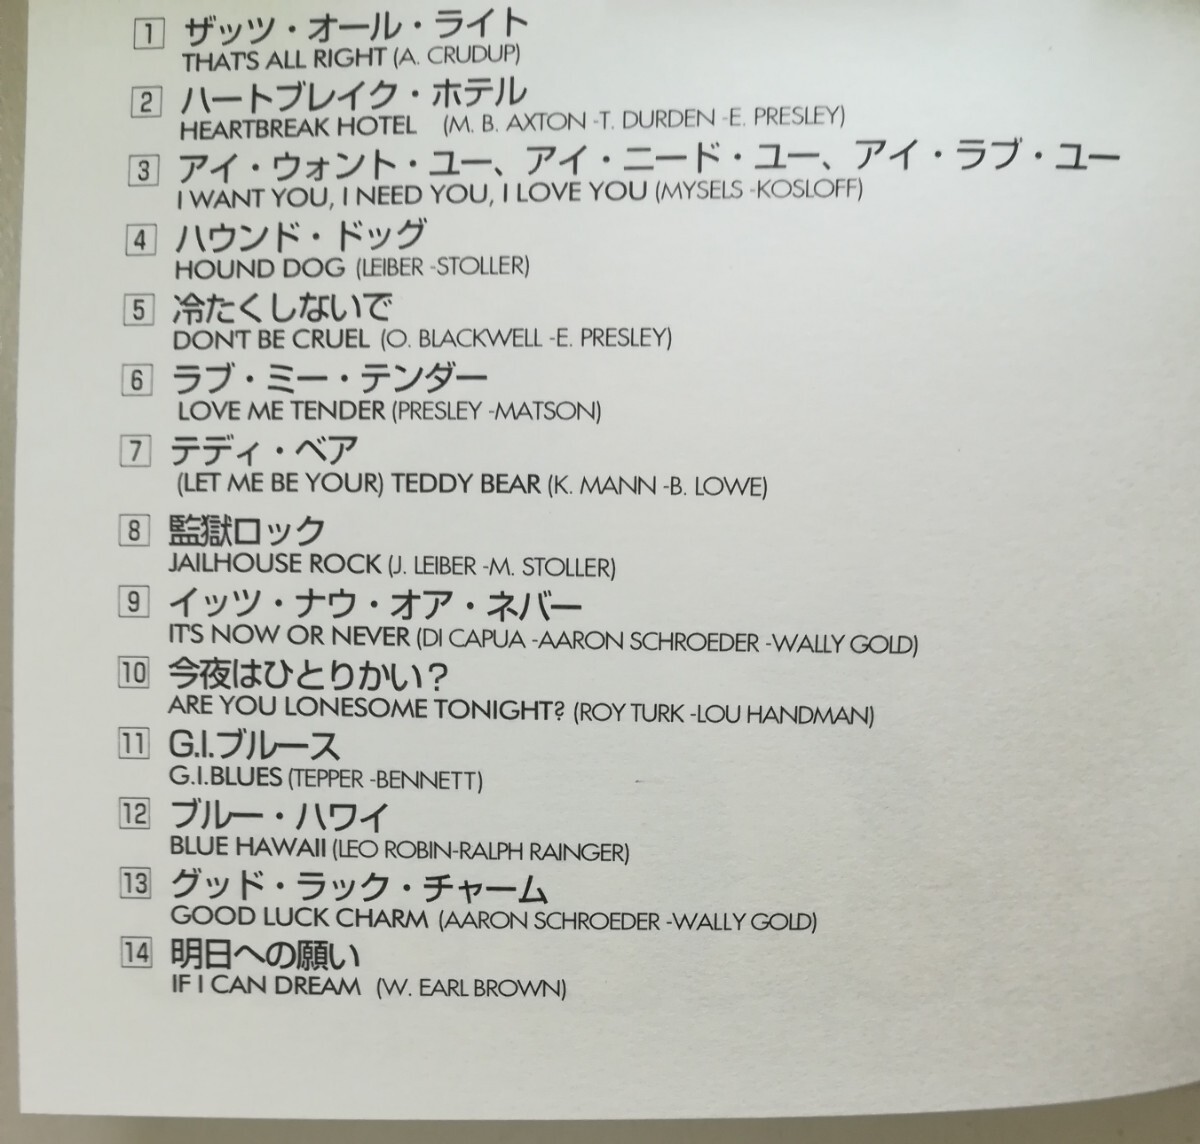 1 ザッツ・オール・ライト
THAT'S ALL RIGHT (A. CRUDUP)
2 ハートブレイク・ホテル
HEARTBREAK HOTEL (M. B. AXTON -T. DURDEN -E. PRESLEY)
3 アイ・ウォント・ユー、アイ・ニード・ユー、アイ・ラブ・ユー
I WANT YOU, I NEED YOU, I LOVE YOU (MYSELS -KOSLOFF)
4 ハウンド・ドッグ
HOUND DOG (LEIBER -STOLLER)
5 冷たくしないで
DON'T BE CRUEL (O. BLACKWELL -E. PRESLEY)
6 ラブ・ミー・テンダー
LOVE ME TENDER (PRESLEY -MATSON)
7 テディ・ベア
(LET ME BE YOUR) TEDDY BEAR (K. MANN -B. LOWE)
8 監獄ロック
JAILHOUSE ROCK (J. LEIBER -M. STOLLER)
9 イッツ・ナウ・オア・ネバー
IT'S NOW OR NEVER (DI CAPUA -AARON SCHROEDER -WALLY GOLD)
10 今夜はひとりかい？
ARE YOU LONESOME TONIGHT? (ROY TURK -LOU HANDMAN)
11 G.I.ブルース
G.I.BLUES (TEPPER -BENNETT)
12 ブルー・ハワイ
BLUE HAWAII (LEO ROBIN-RALPH RAINGER)
13 グッド・ラック・チャーム
GOOD LUCK CHARM (AARON SCHROEDER -WALLY GOLD)
14 明日への願い
IF I CAN DREAM (W. EARL BROWN)